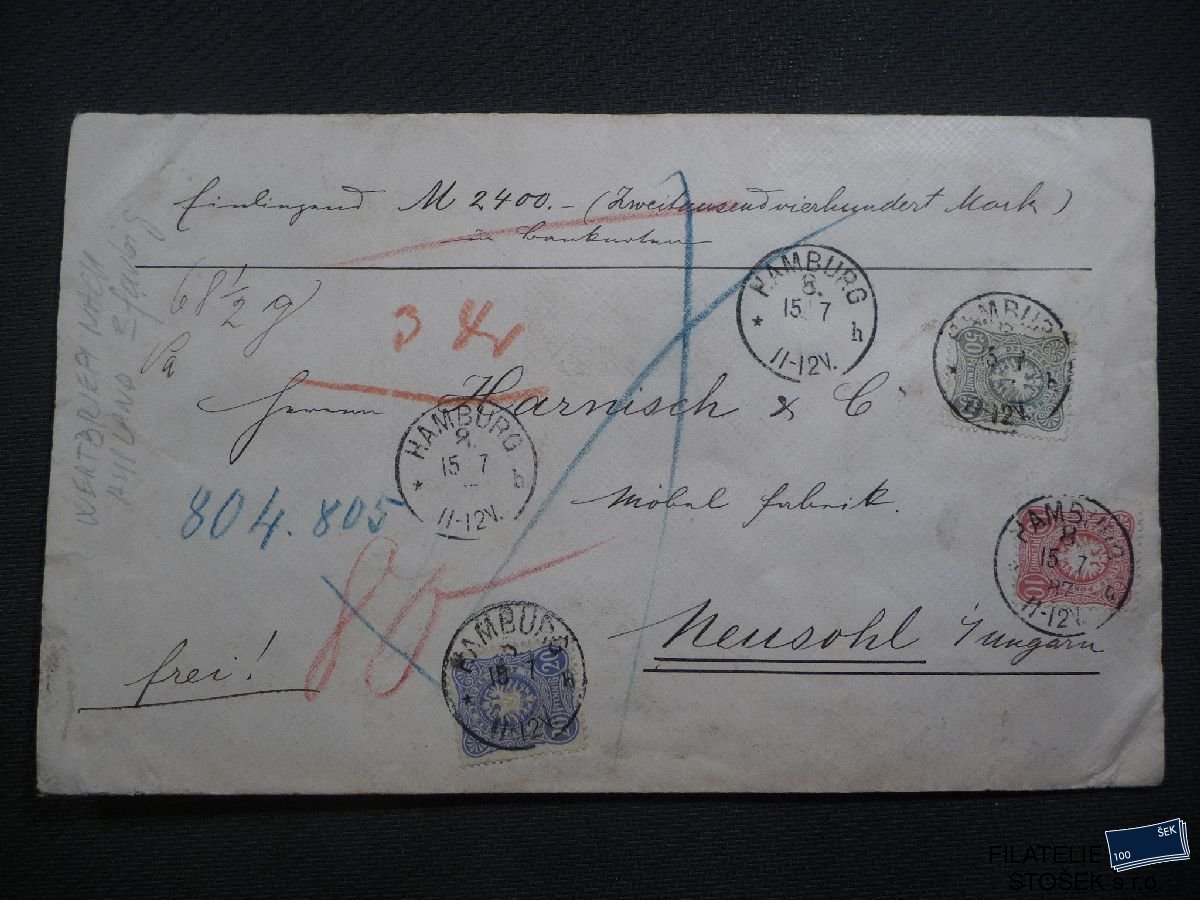 Einliegend M 2400.- (Zweitausendvierhundert Mark)
in Banknoten
68 1/2 g
3 Kr
HAMBURG
8.
15 7
*
h
11-12V.
HAMBURG
15 7
*
h
11-12V.
50
Herren Harnisch & C°
HAMBURG
15 7
*
11-12V.
804.805
Möbel fabrik.
HAMBURG
8
15 7
87
11-12V.
10
80
Neusohl Ungarn
frei!
HAMBURG
15 7
*
h
11-12V.
20
WERTBRIEF NACH
FILATELIE
STOŠEK s.r.o.
100
ŠEK